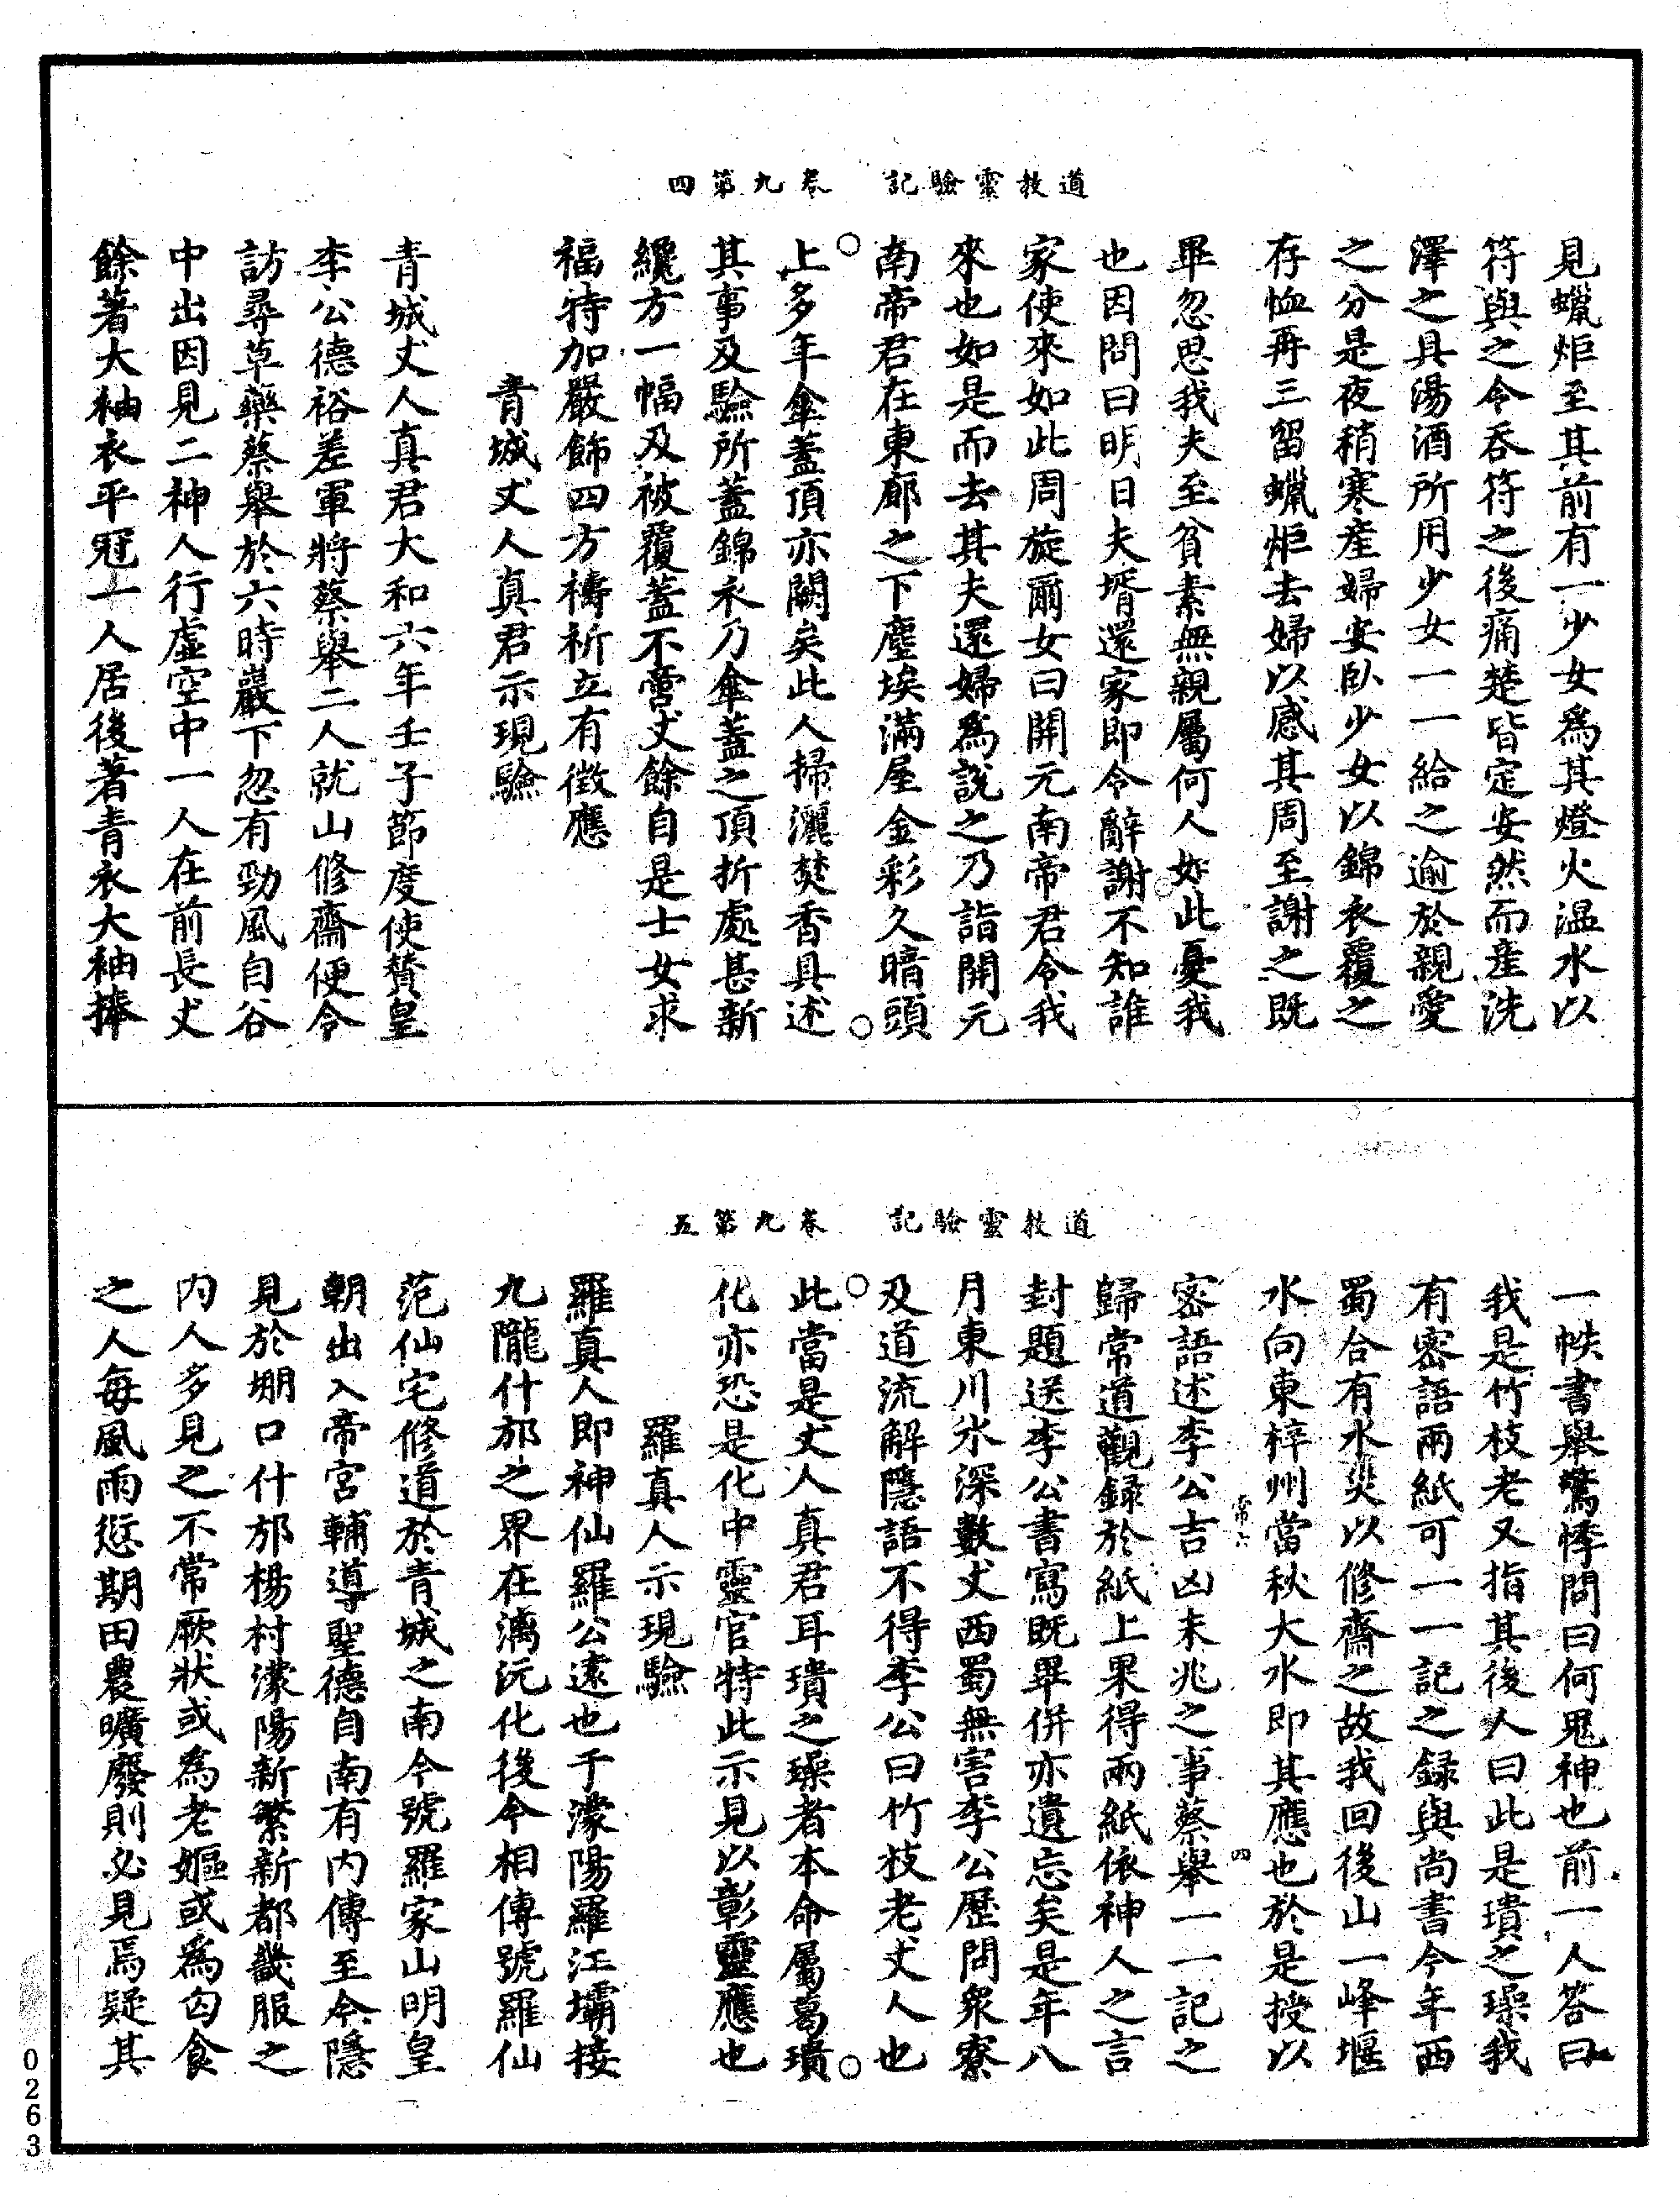 道教靈驗記　卷九第四
見蠟炬至其前有一少女爲其燈火温水以
符與之令吞符之後痛楚皆定安然而產洗
澤之具湯酒所用少女一一給之逾於親愛
之分是夜稍寒產婦安卧少女以錦衣覆之
存恤再三留蠟炬去婦以感其周至謝之既
畢忽思我夫至貧素無親屬何人如此憂我
也因問曰明日夫壻還家即令辭謝不知誰
家使來如此周旋爾女曰開元南帝君令我
來也如是而去其夫還婦爲說之乃詣開元
南帝君在東廊之下塵埃滿屋金彩久暗頭
上多年傘蓋頂亦闕矣此人掃灑焚香具述
其事及驗所蓋錦衣乃傘蓋之頂折處甚新
纔方一幅及被覆蓋不啻丈餘自是士女求
福特加嚴飾四方禱祈立有徵應
青城丈人真君示現驗
青城丈人真君大和六年壬子節度使贊皇
李公德裕差軍將蔡舉二人就山修齋便令
訪尋草藥蔡舉於六時巖下忽有勁風自谷
中出因見二神人行虛空中一人在前長丈
餘著大袖衣平冠一人居後著青衣大袖捧
道教靈驗記　卷九第五
一帙書舉驚悸問曰何鬼神也前一人答曰
我是竹枝老又指其後人曰此是璝之璪我
有密語兩紙可一一記之録與尚書今年西
蜀合有水災以修齋之故我回後山一峰堰
水向東梓州當秋大水即其應也於是授以
常六　四
密語述李公吉凶未兆之事蔡舉一一記之
歸常道觀録於紙上果得兩紙依神人之言
封題送李公書寫既畢併亦遺忘矣是年八
月東川水深數丈西蜀無害李公歷問衆寮
及道流解隱語不得李公曰竹枝老丈人也
此當是丈人真君耳璝之璪者本命屬葛璝
化亦恐是化中靈官特此示見以彰靈應也
羅真人示現驗
羅真人即神仙羅公遠也于濛陽羅江壩接
九隴什邡之界在漓沅化後今相傳號羅仙
范仙宅修道於青城之南今號羅家山明皇
朝出入帝宮輔導聖德自南有内傳至今隱
見於堋口什邡楊村濛陽新繁新都畿服之
内人多見之不常厥狀或爲老嫗或爲匃食
之人每風雨愆期田農曠廢則必見焉疑其
0263